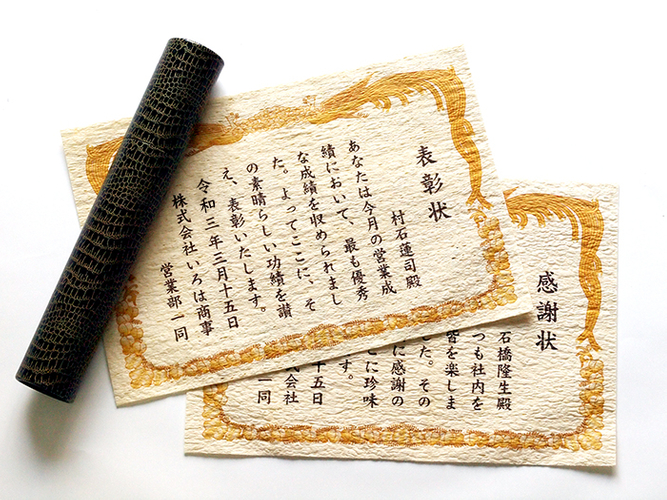 表彰状
村石蓮司殿
あなたは今月の営業成
績において、最も優秀
な成績を収められまし
た。よってここに、そ
の素晴らしい功績を讃
え、表彰いたします。
令和三年三月十五日
株式会社いろは商事
営業部一同
感謝状
石橋隆生殿
つも社内を
皆を楽しま
た。その
に感謝の
こに珍味
す。
十五日
会社
一同